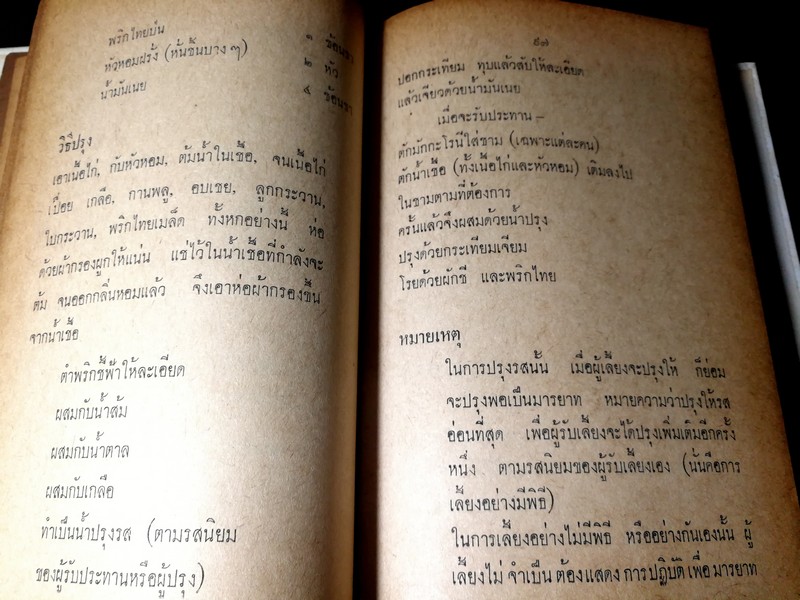 พริกไทยป่น ๑ ช้อนชา
หัวหอมฝรั่ง (หั่นชิ้นบาง ๆ) ๒ หัว
น้ำมันเนย ๔ ช้อนชา
วิธีปรุง
เอาเนื้อไก่, กับหัวหอม, ต้มน้ำในเชื้อ, จนเนื้อไก่
เปื่อย เกลือ, กานพลู, อบเชย, ลูกกระวาน,
ใบกระวาน, พริกไทยเมล็ด ทั้งหกอย่างนี้ ห่อ
ด้วยผ้ากรองผูกให้แน่น แช่ไว้ในน้ำเชื้อที่กำลังจะ
ต้ม จนออกกลิ่นหอมแล้ว จึงเอาห่อผ้ากรองขึ้น
จากน้ำเชื้อ
ตำพริกชี้ฟ้าให้ละเอียด
ผสมกับน้ำส้ม
ผสมกับน้ำตาล
ผสมกับเกลือ
ทำเป็นน้ำปรุงรส (ตามรสนิยม
ของผู้รับประทานหรือผู้ปรุง)
๕๗
ปอกกระเทียม ทุบแล้วสับให้ละเอียด
แล้วเจียวด้วยน้ำมันเนย
เมื่อจะรับประทาน –
ตักมักกะโรนีใส่ชาม (เฉพาะแต่ละคน)
ตักน้ำเชื้อ (ทั้งเนื้อไก่และหัวหอม) เติมลงไป
ในชามตามที่ต้องการ
ครั้นแล้วจึงผสมด้วยน้ำปรุง
ปรุงด้วยกระเทียมเจียม
โรยด้วยผักชี และพริกไทย
หมายเหตุ
ในการปรุงรสนั้น เมื่อผู้เลี้ยงจะปรุงให้ ก็ย่อม
จะปรุงพอเป็นมารยาท หมายความว่าปรุงให้รส
อ่อนที่สุด เพื่อผู้รับเลี้ยงจะได้ปรุงเพิ่มเติมอีกครั้ง
หนึ่ง ตามรสนิยมของผู้รับเลี้ยงเอง (นั่นคือการ
เลี้ยงอย่างมีพิธี)
ในการเลี้ยงอย่างไม่มีพิธี หรืออย่างกันเองนั้น ผู้
เลี้ยงไม่ จำเป็น ต้องแสดง การปฏิบัติ เพื่อ มารยาท